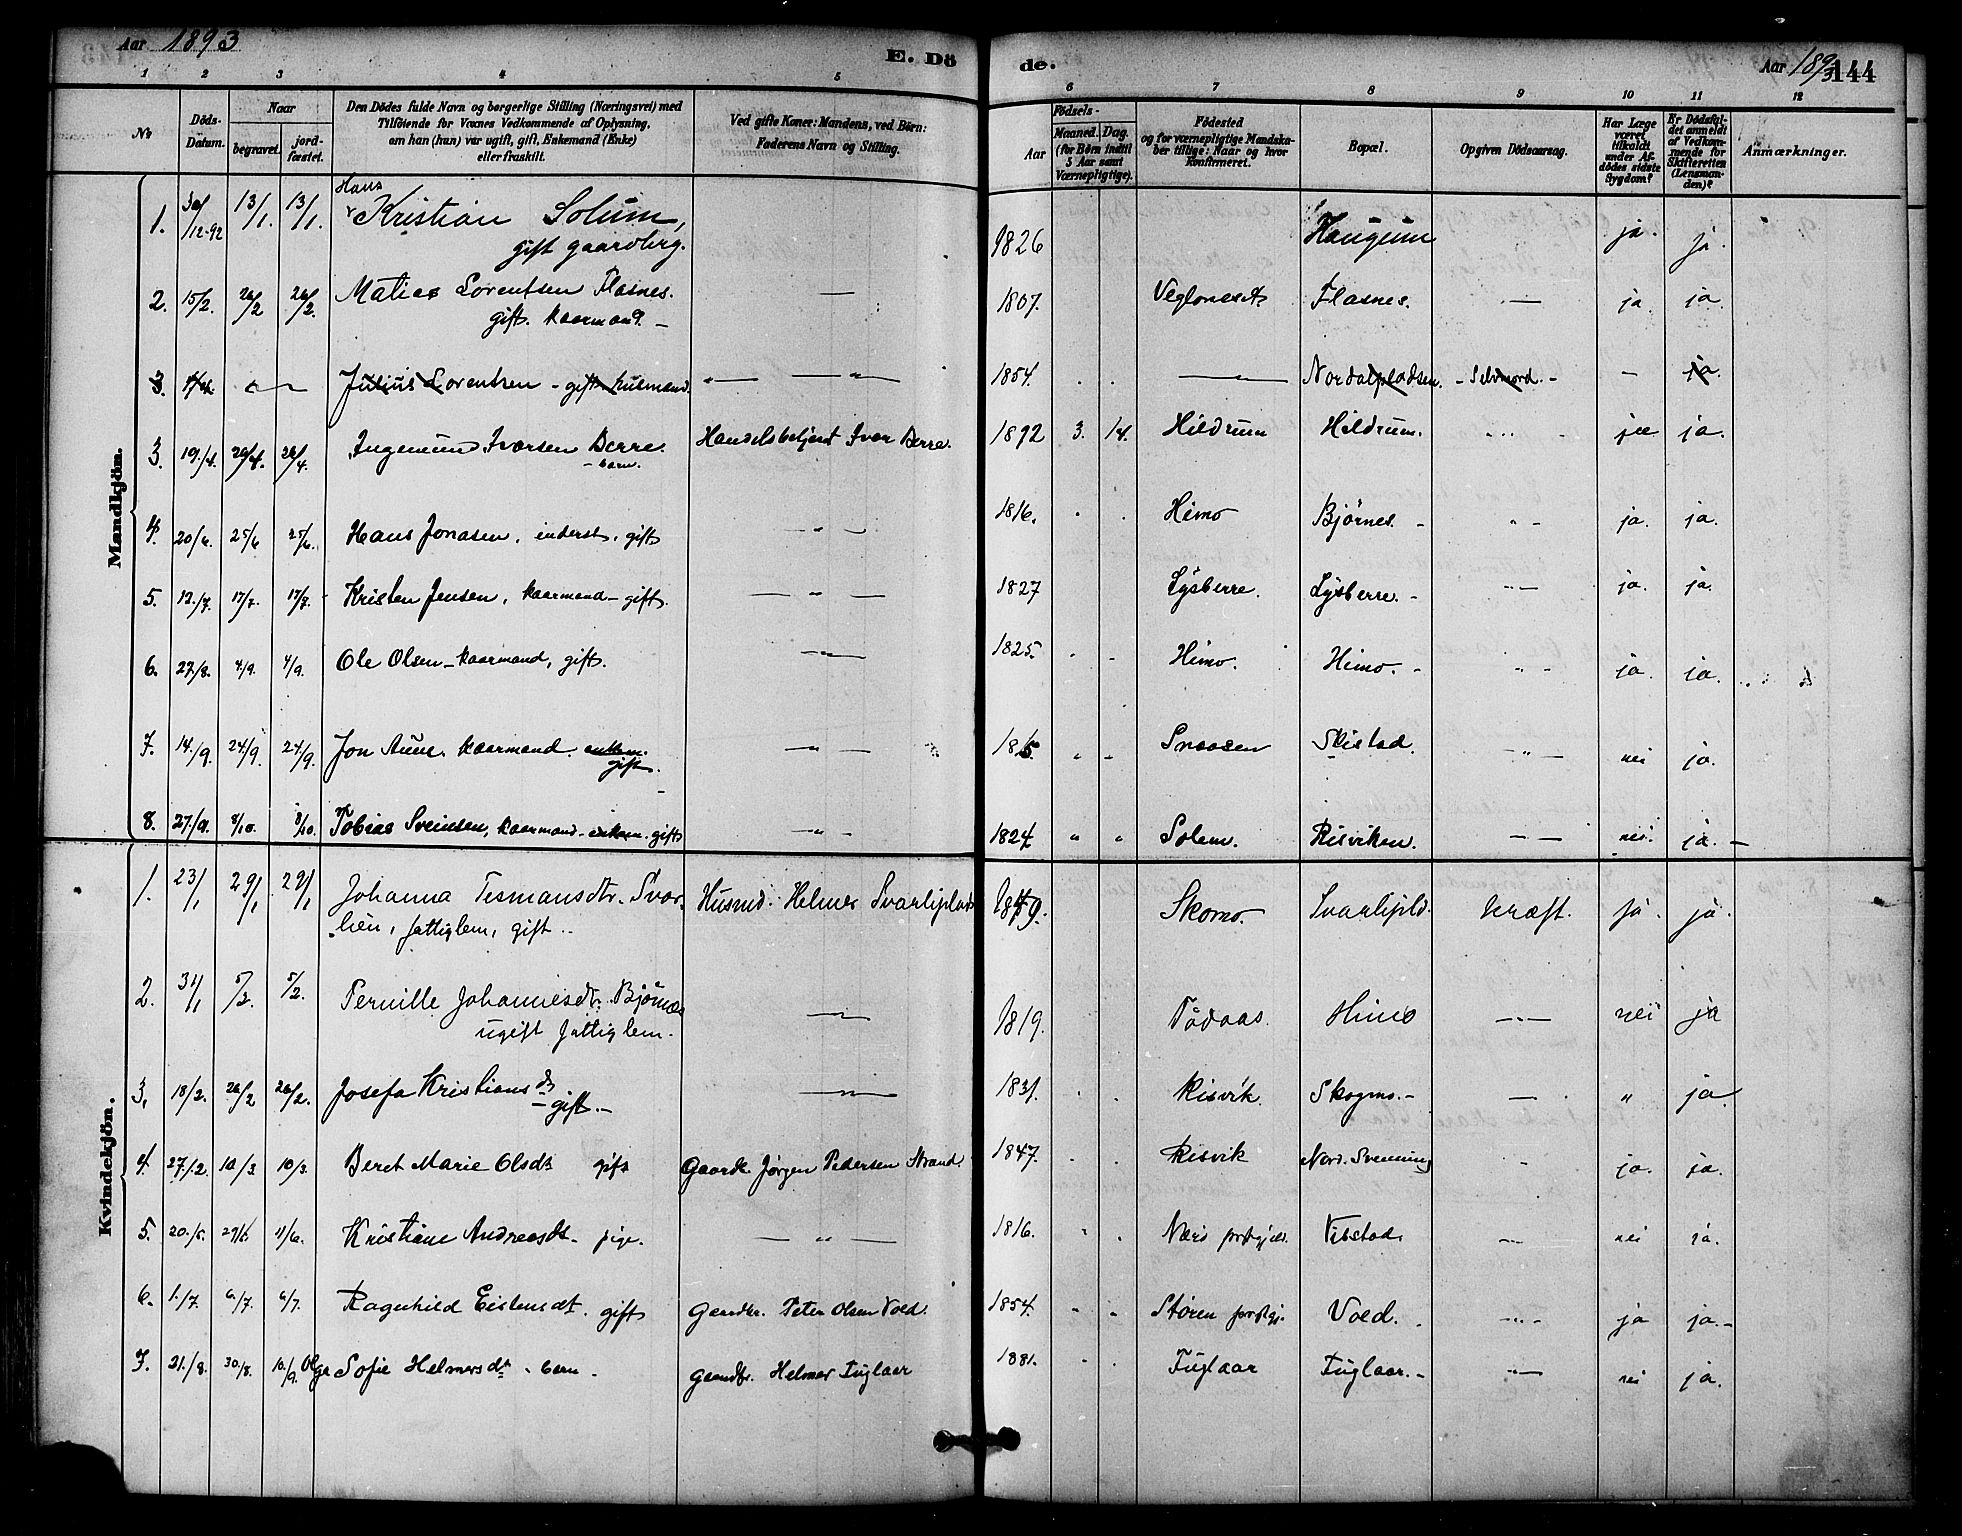 Aar 1893
E. Dö
de.
Aar 1893 144
1 2 3 4 5 6 7 8 9 10 11 12
No
Döds-Datum.
Naar
begravet.
jord-fæstet.
Den Dödes fulde Navn og borgerlige Stilling (Næringsvei) med
Tilföiende for Voxnes Vedkommende af Oplysning,
om han (hun) var ugift, gift, Enkemand (Enke)
eller fraskilt.
Ved gifte Koner: Mandens, ved Børn:
Faderens Navn og Stilling.
Födsels-
Aar
Maaned. Dag.
(for Börn indtil
5 Aar samt
Værnepligtige).
Födested
og for værnepligtige Mandska-
ber tillige: Naar og hvor
Konfirmeret.
Bopæl.
Opgiven Dödsaarsag.
Har Læge
været
tilkaldt
under Af-
dödes sidste
Sygdom?
Er Dödsfal-
det anmeldt
af Vedkom-
mende for
Skifteretten
(Lensman-
den)?
Anmærkninger.
Mandkjön.
Hans
1. 30/12-92 13/1. 13/1. Kristian Solum, 1826 Haugum ja. ja.
gift gaardbrg.
2. 15/2. 26/2 26/2. Matias Lorentsen Flasnes. — 1807. Flasnes. — ja. ja.
gift. kaarmand. —
3. Julius Lorentsen - gift husmand. — " — 1854. — Nordalpladsen. - Selvmord. - — ja.
3. 19/4. 26/4. 26/4. Ingemund Ivarsen Berre. Handelsbetjent Ivar Berre. 1892 3. 14. Hildrum Hildrum. ja ja.
- barn.
4. 20/6. 25/6 25/6. Hans Jonasen, inderst, gift — " — 1816. Himo Björnes. - " - ja. ja.
5. 12./7. 17/7. 17/7. Kristen Jensen, kaarmand - gift. — " — 1827 Lysberre. Lysberre. - — ja. ja.
6. 27./8. 4/9. 4/9. Ole Olsen - kaarmand, gift. — " — 1825. Himo. Himo. - " - ja. ja.
7. 14./9. 24/9. 24/9. Jon Aune. kaarmand. enkem. — " — Snaasen Skistad. — " — nei ja.
gift.
8. 27./9. 8/10. 8/10. Tobias Sveinsen, kaarmand - enkem. gift — " — 1824. " " Solem. Risviken. — nei ja. —
Kvindekjön.
1. 23/1 29/1 29/1 Johanna Tesmansdtr. Svar- Husmd. Helmer Svarliplads Skomo. Svarlipld. kræft. ja. ja.
lien, fattiglem, gift..
2. 31/1 5/2. 5/2. Pernille Johannesdtr. Björnes — 1819. Himo — " — nei ja
ugift fattiglem.
3. 18/2. 26/2 26/2. Josefa Kristiansdt — " — 1831. Risvik. Skogmo. - — " ja
gift. —
4. 27./2. 10./3 10/3. Beret Marie Olsdt gift Gaardb. Jørgen Pedersen Strand. 1847. Risvik Nord. Svenning - ja. ja.
5. 20./5. 11/6. Kristiane Andreasdt. pige. — " — 1816. Nærø prstgjæl. Vibstad. — nei ja.
6. 1./7. 6/7. 6/7. Ragnhild Eistensdt. gift Gaardbr. Peter Olsen Voed. 1854. " " Støren prstgj. Voed. — " — ja ja. —
7. 21./8. 30./8. 10./9. Olga Sofie Helmersdt. barn. Gaardbr. Helmer Fuglaar 1881. Fuglaar Fuglaar. - — " — nei ja.